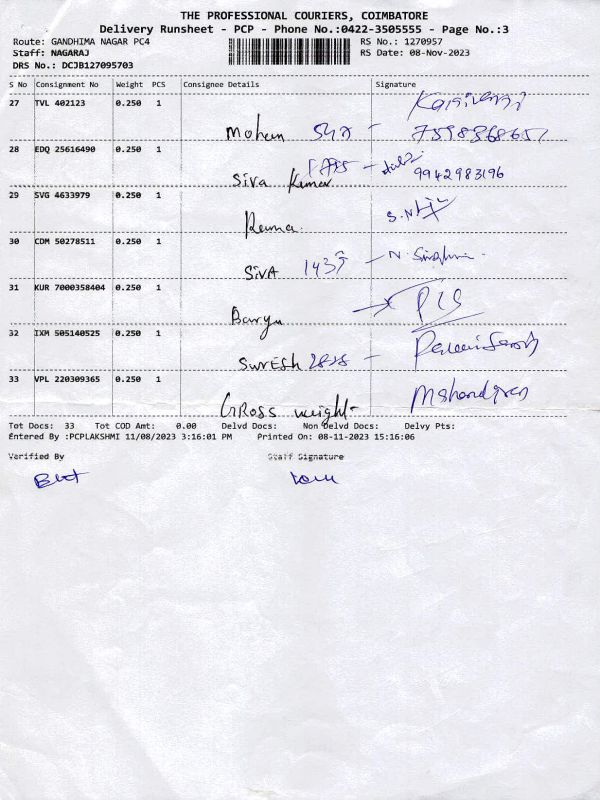 THE PROFESSIONAL COURIERS, COIMBATORE
Delivery Runsheet - PCP - Phone No.:0422-3505555 - Page No.:3
Route: GANDHIMA NAGAR PC4 RS No.: 1270957
Staff: NAGARAJ RS Date: 08-Nov-2023
DRS No.: DCJB127095703
S No Consignment No Weight PCS Consignee Details Signature
27 TVL 402123 0.250 1
Mohan 7598368651
28 EDQ 25616490 0.250 1
Siva Kumar 9942983196
29 SVG 4633979 0.250 1
Rema
30 CDM 50278511 0.250 1
SIVA 1435
31 KUR 7000358404 0.250 1
PCS
32 IXM 505140525 0.250 1
SURESH
33 VPL 220309365 0.250 1
GROSS weight
Tot Docs: 33 Tot COD Amt: 0.00 Delvd Docs: Non Delvd Docs: Delvy Pts:
Entered By :PCPLAKSHMI 11/08/2023 3:16:01 PM Printed On: 08-11-2023 15:16:06
Verified By Staff Signature